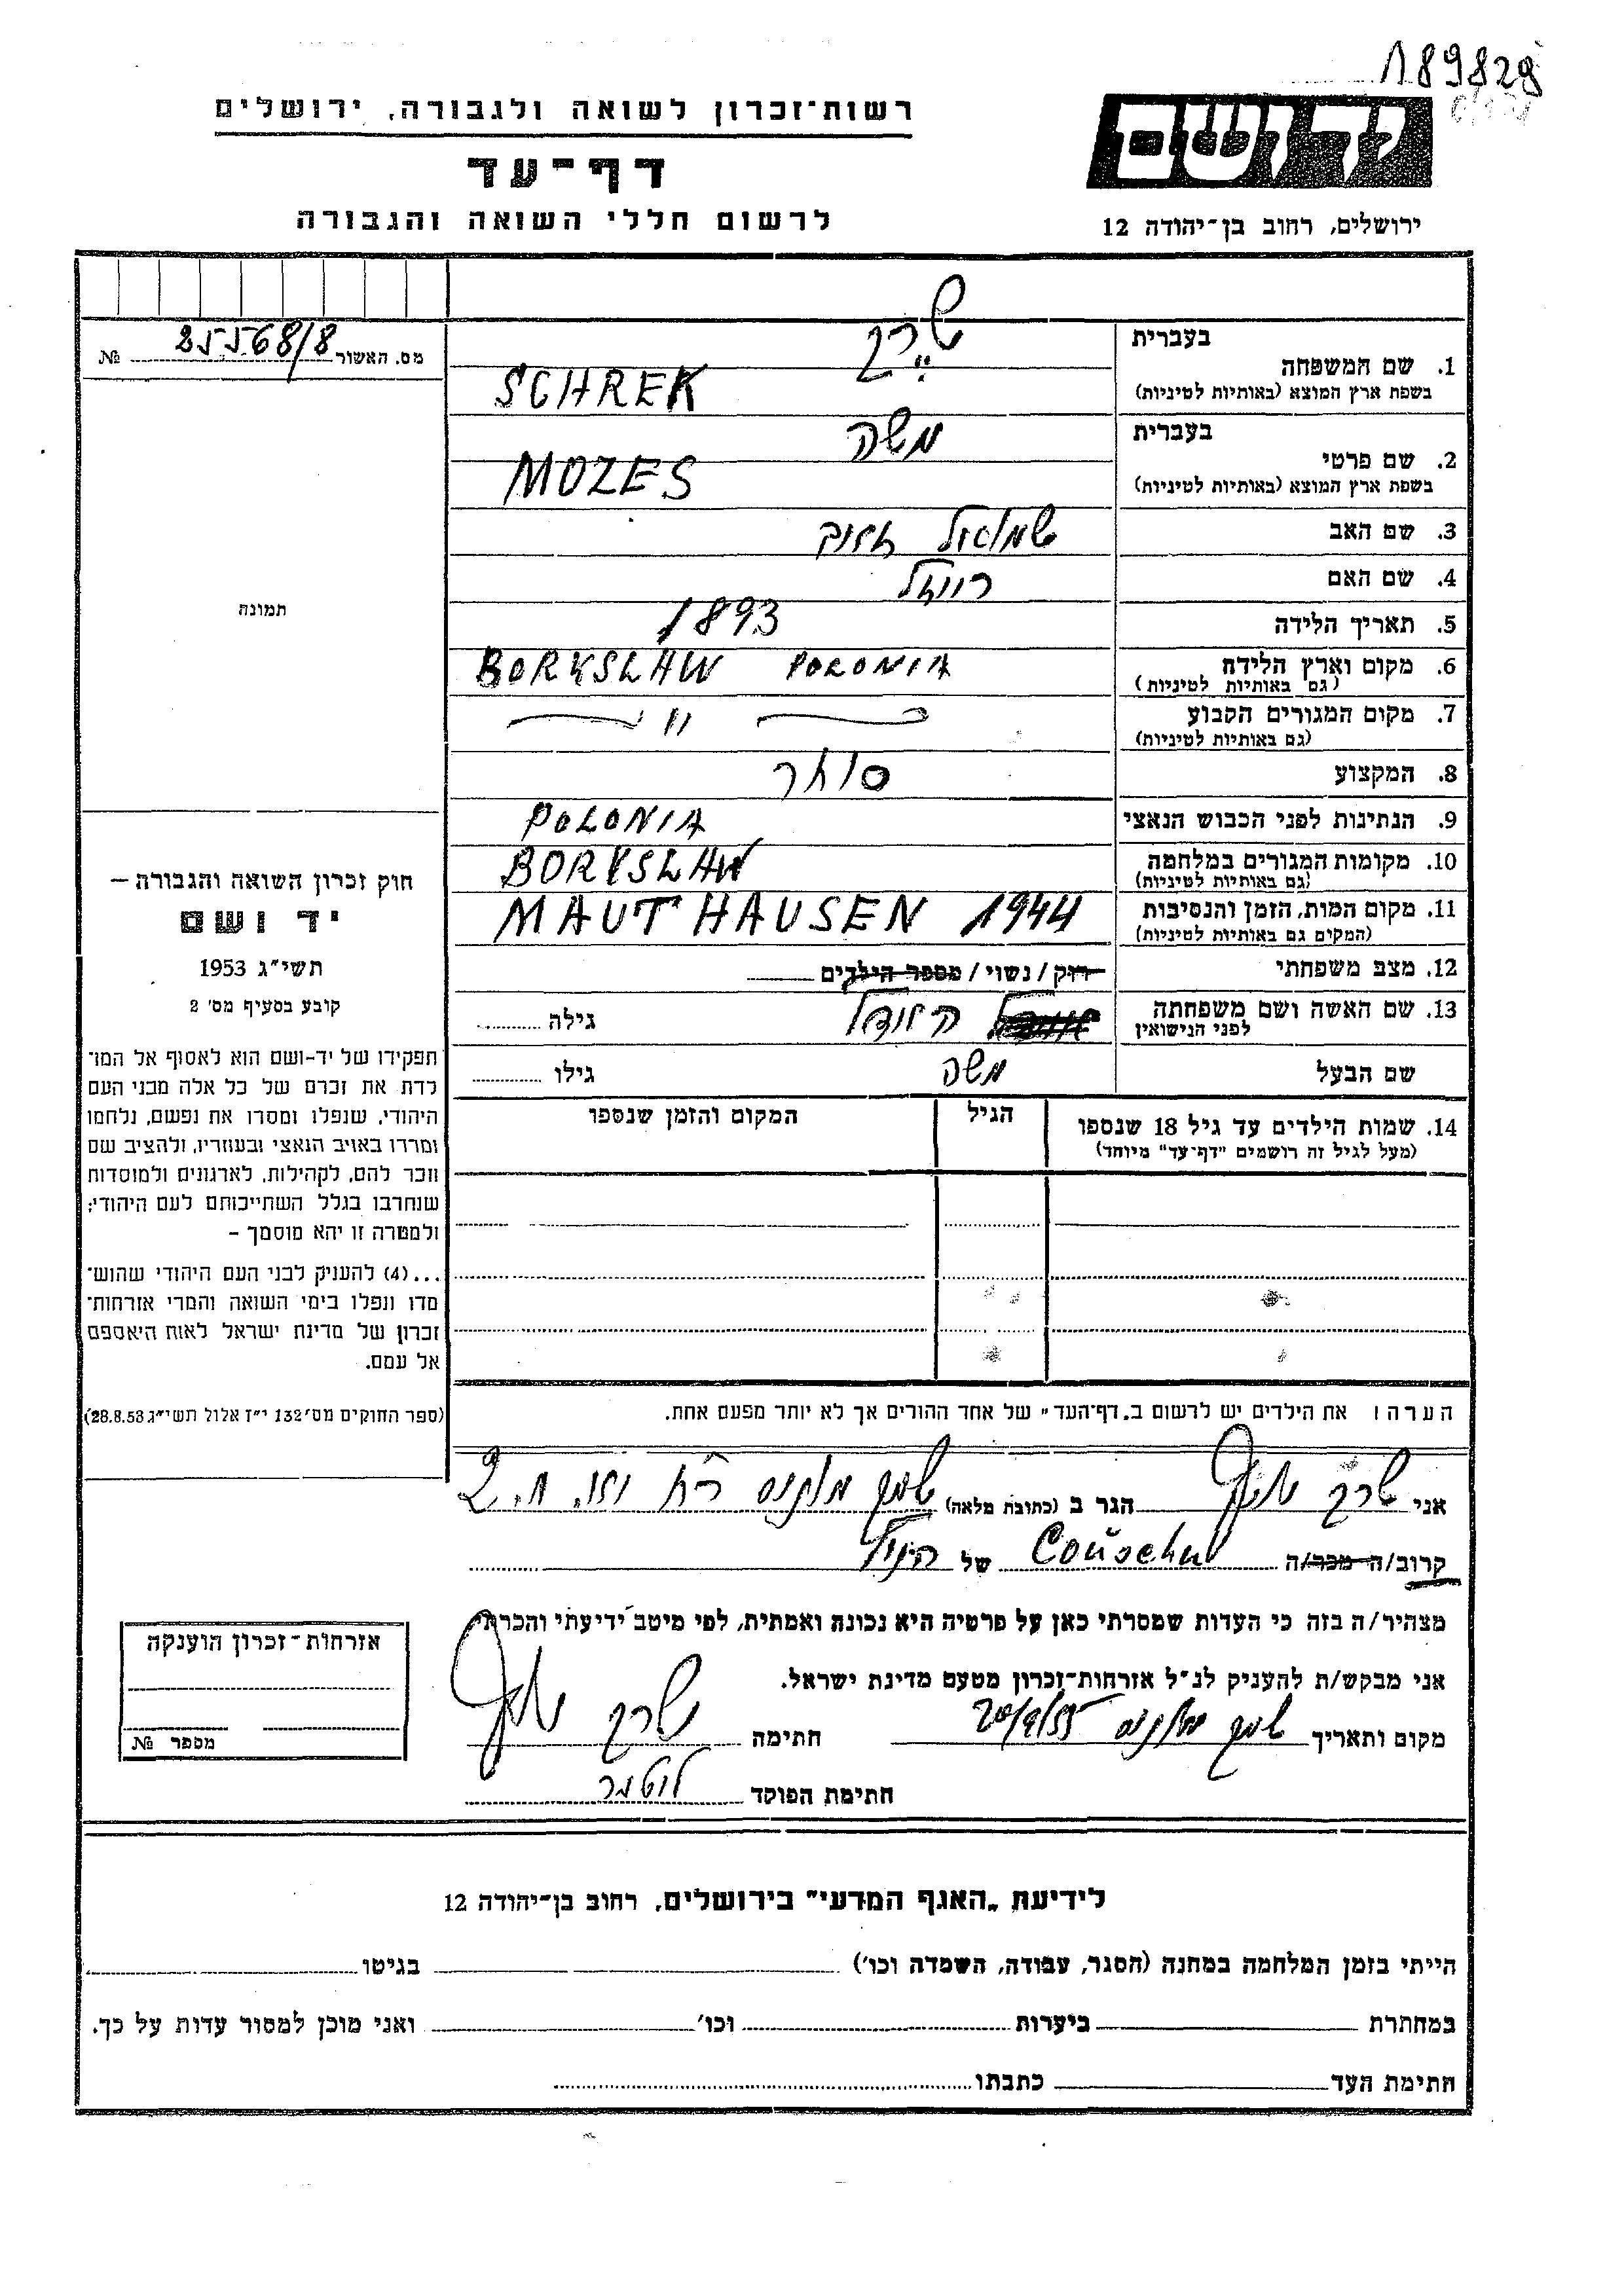 189829
יד ושם
ירושלים, רחוב בן־יהודה 12
רשות־זכרון לשואה ולגבורה, ירושלים
דף־עד
לרשום חללי השואה והגבורה
מס. האשור 25568/8 №
תמונה
בעברית
1. שם המשפחה שרק
בשפת ארץ המוצא (באותיות לטיניות) SCHREK
בעברית
2. שם פרטי משה
בשפת ארץ המוצא (באותיות לטיניות) MOZES
3. שם האב שמואל
4. שם האם
5. תאריך הלידה 1893
6. מקום וארץ הלידה BORYSLAW POLONIA
(גם באותיות לטיניות)
7. מקום המגורים הקבוע — 11 —
(גם באותיות לטיניות)
8. המקצוע סוחר
9. הנתינות לפני הכבוש הנאצי POLONIA
10. מקומות המגורים במלחמה BORYSLAW
(גם באותיות לטיניות)
11. מקום המות, הזמן והנסיבות MAUTHAUSEN 1944
(המקום גם באותיות לטיניות)
12. מצב משפחתי רוק / נשוי / מספר הילדים
13. שם האשה ושם משפחתה גילה
לפני הנישואין
שם הבעל משה גילו
14. שמות הילדים עד גיל 18 שנספו הגיל המקום והזמן שנספו
(מעל לגיל זה רושמים "דף־עד" מיוחד)
חוק זכרון השואה והגבורה —
יד ושם
תשי"ג 1953
קובע בסעיף מס' 2
תפקידו של יד-ושם הוא לאסוף אל המו־
לדת את זכרם של כל אלה מבני העם
היהודי, שנפלו ומסרו את נפשם, נלחמו
ומררו באויב הנאצי ובעוזריו, ולהציב שם
וזכר להם, לקהילות, לארגונים ולמוסדות
שנחרבו בגלל השתייכותם לעם היהודי;
ולמטרה זו יהא מוסמך —
...(4) להעניק לבני העם היהודי שהוש־
מדו ונפלו בימי השואה והמרי אזרחות־
זכרון של מדינת ישראל לאות היאספם
אל עמם.
(ספר החוקים מס' 132 י"ז אלול תשי"ג 28.8.53)
הערה: את הילדים יש לרשום ב„דף־העד" של אחד ההורים אך לא יותר מפעם אחת.
אני שרק הגר ב (כתובת מלאה)
קרוב/ה מכר/ה של הנ"ל
מצהיר/ה בזה כי העדות שמסרתי כאן על פרטיה היא נכונה ואמתית, לפי מיטב ידיעתי והכרתי
אני מבקש/ת להעניק לנ"ל אזרחות־זכרון מטעם מדינת ישראל.
מקום ותאריך חתימה שרק
חתימת הפוקד
אזרחות־זכרון הוענקה
מספר №
לידיעת „האגף המדעי" בירושלים, רחוב בן־יהודה 12
הייתי בזמן המלחמה במחנה (הסגר, עבודה, השמדה וכו') בגיטו
במחתרת ביערות וכו' ואני מוכן למסור עדות על כך.
חתימת העד כתבתו